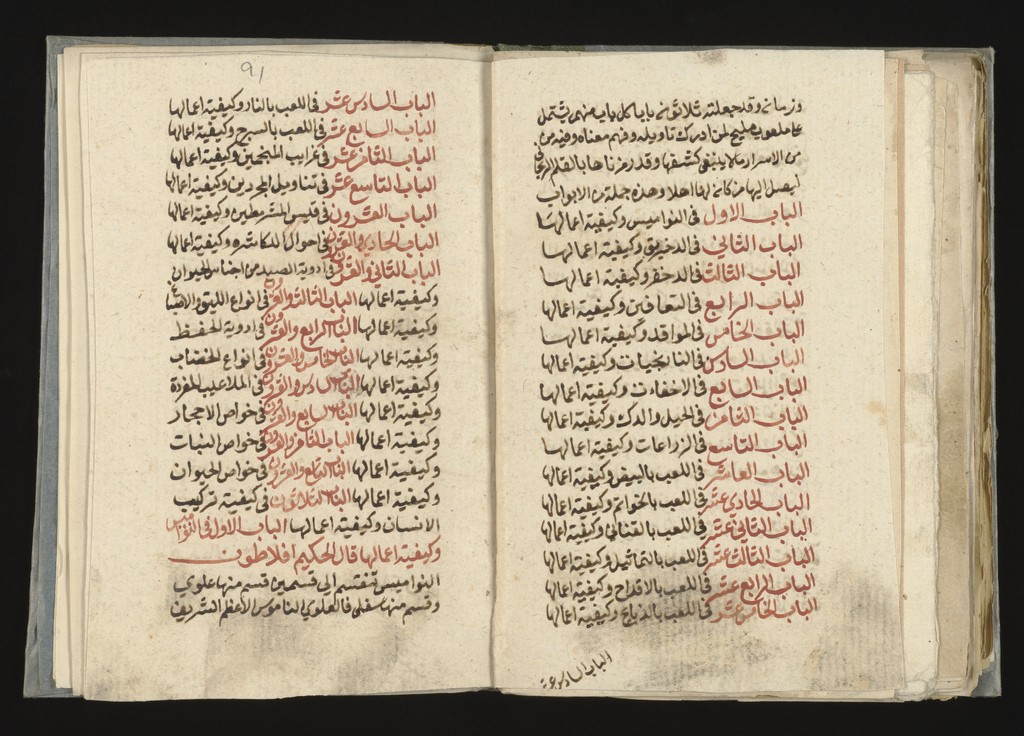 وزماني وقد جعلته ثلاثون بابا كل باب منهم يشتمل
على ملعوب مليح لمن ادرك تاويله وفهم معناه وفيه من
من الاسرار ما لا ينبغي كشفها وقد رمزناها بالقلم
ليصل اليها من كان لها اهلا وهذه جملة الابواب
الباب الاول في النواميس وكيفية اعمالها
الباب الثاني في الدخريق وكيفية اعمالها
الباب الثالث في الدخر وكيفية اعمالها
الباب الرابع في التعافين وكيفية اعمالها
الباب الخامس في المواقد وكيفية اعمالها
الباب السادس في النارنجيات وكيفية اعمالها
الباب السابع في الاخفاءت وكيفية اعمالها
الباب الثامن في الحيل والدك وكيفية اعمالها
الباب التاسع في الزراعات وكيفية اعمالها
الباب العاشر في اللعب بالبيض وكيفية اعمالها
الباب الحادي عشر في اللعب بالخواتم وكيفية اعمالها
الباب الثاني عشر في اللعب بالقناني وكيفية اعمالها
الباب الثالث عشر في اللعب بالتماثيل وكيفية اعمالها
الباب الرابع عشر في اللعب بالاقداح وكيفية اعمالها
الباب الخامس عشر في اللعب وكيفية اعمالها
الباب السادس عشر
91
الباب السادس عشر في اللعب بالنار وكيفية اعمالها
الباب السابع عشر في اللعب بالسرج وكيفية اعمالها
الباب الثامن عشر في غرايب المنجمين وكيفية اعمالها
الباب التاسع عشر في تناويل المجردين وكيفية اعمالها
الباب العشرون في المشرمطين وكيفية اعمالها
الباب الحادي والعشرون في احوال وكيفية اعمالها
الباب الثاني والعشرون في ادوية الصيد من اجناس الحيوان
وكيفية اعمالها الباب الثالث والعشرون في انواع الليق والاصباغ
وكيفية اعمالها الباب الرابع والعشرون في ادوية الحفظ
وكيفية اعمالها الباب الخامس والعشرون في انواع الخضاب
وكيفية اعمالها الباب السادس والعشرون في الملاعيب المفردة
وكيفية اعمالها الباب السابع والعشرون في خواص الاحجار
وكيفية اعمالها الباب الثامن والعشرون في خواص النبات
وكيفية اعمالها الباب التاسع والعشرون في خواص الحيوان
وكيفية اعمالها الباب الثلاثون في كيفية تركيب
الانسان وكيفية اعمالها الباب الاول في النواميس
وكيفية اعمالها قال الحكيم افلاطون
النواميس تنقسم الي قسمين قسم منها علوي
وقسم منها سفلي فالعلوي الناموس الاعظم الشريف